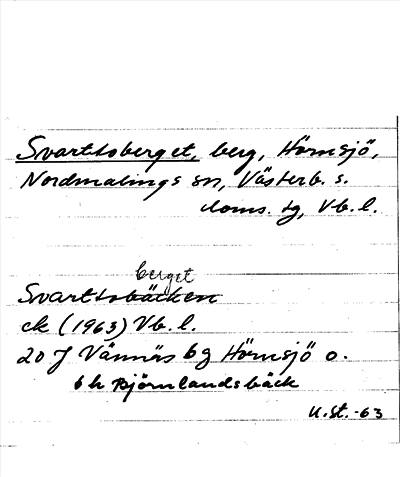 Svarttoberget, berg, Hörnsjö,
Nordmalings sn, Västerb. s.
doms. tg, Vb. l.
berget
Svarttobäcken
ek (1963) Vb. l.
20 J Vännäs 6 g Hörnsjö o.
6 h Björnlandsbäck
U. St. -63